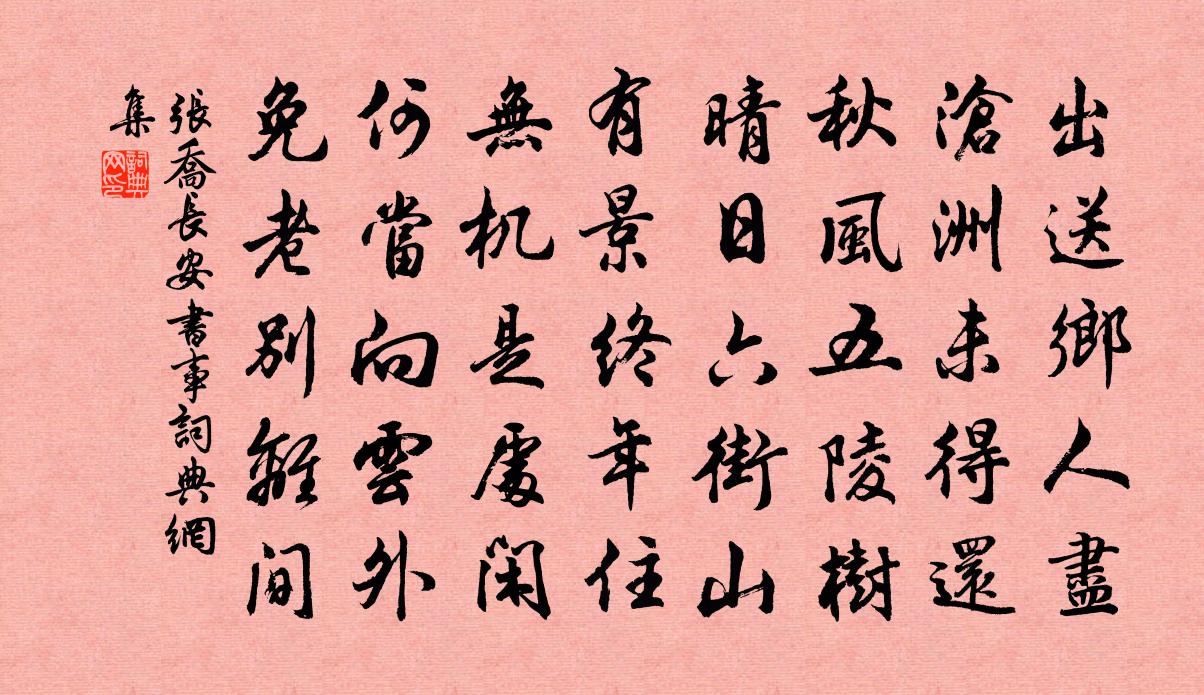 出送鄉人盡
滄洲未得還
秋風五陵樹
晴日六街山
有景終年住
無机是處閑
何當向雲外
免老別離間
張喬長安書事詞典網
集
詞典
网印